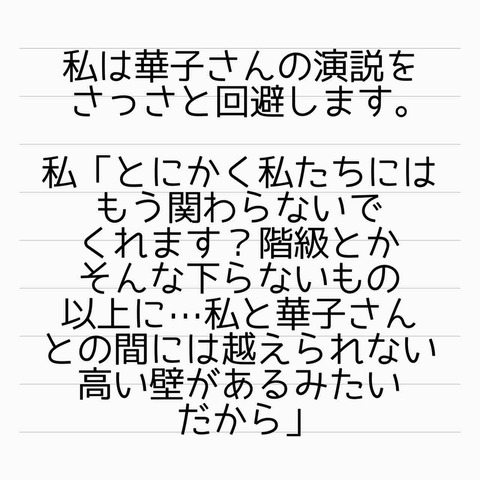 私は華子さんの演説を
さっさと回避します。
私「とにかく私たちには
もう関わらないで
くれます？階級とか
そんな下らないもの
以上に…私と華子さん
との間には越えられない
高い壁があるみたい
だから」